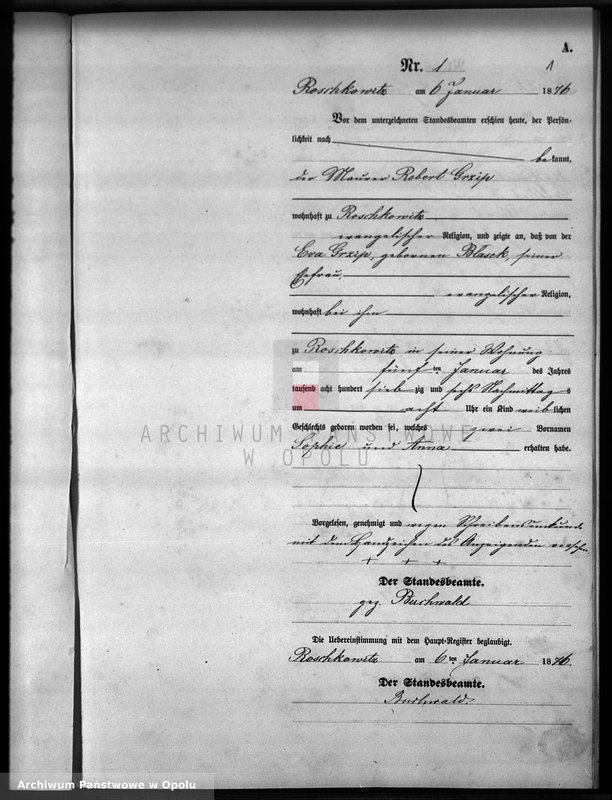 A.
Nr. 1
1
Roschkowitz am 6 Januar 1876
Vor dem unterzeichneten Standesbeamten erschien heute, der Persön-
lichkeit nach
be kannt,
der Maurer Robert Grzip
wohnhaft zu Roschkowitz
evangelischer Religion, und zeigte an, daß von der
Eva Grzip, gebornen Blasek, seiner
Ehefrau,
evangelischer Religion,
wohnhaft bei ihm
zu Roschkowitz in seiner Wohnung
am fünf ten Januar des Jahres
tausend acht hundert sieb zig und sechs Nachmittag s
um acht Uhr ein Kind weib lichen
Geschlechts geboren worden sei, welches zwei Vornamen
Sophie und Anna erhalten habe.
Vorgelesen, genehmigt und wegen Schreibensunkunde
mit dem Handzeichen des Anzeigenden versehen.
+ + +
Der Standesbeamte.
gez. Buchwald
Die Uebereinstimmung mit dem Haupt-Register beglaubigt.
Roschkowitz am 6 ten Januar 1876.
Der Standesbeamte.
Buchwald
ARCHIWUM PAŃSTWOWE
W OPOLU
Archiwum Państwowe w Opolu